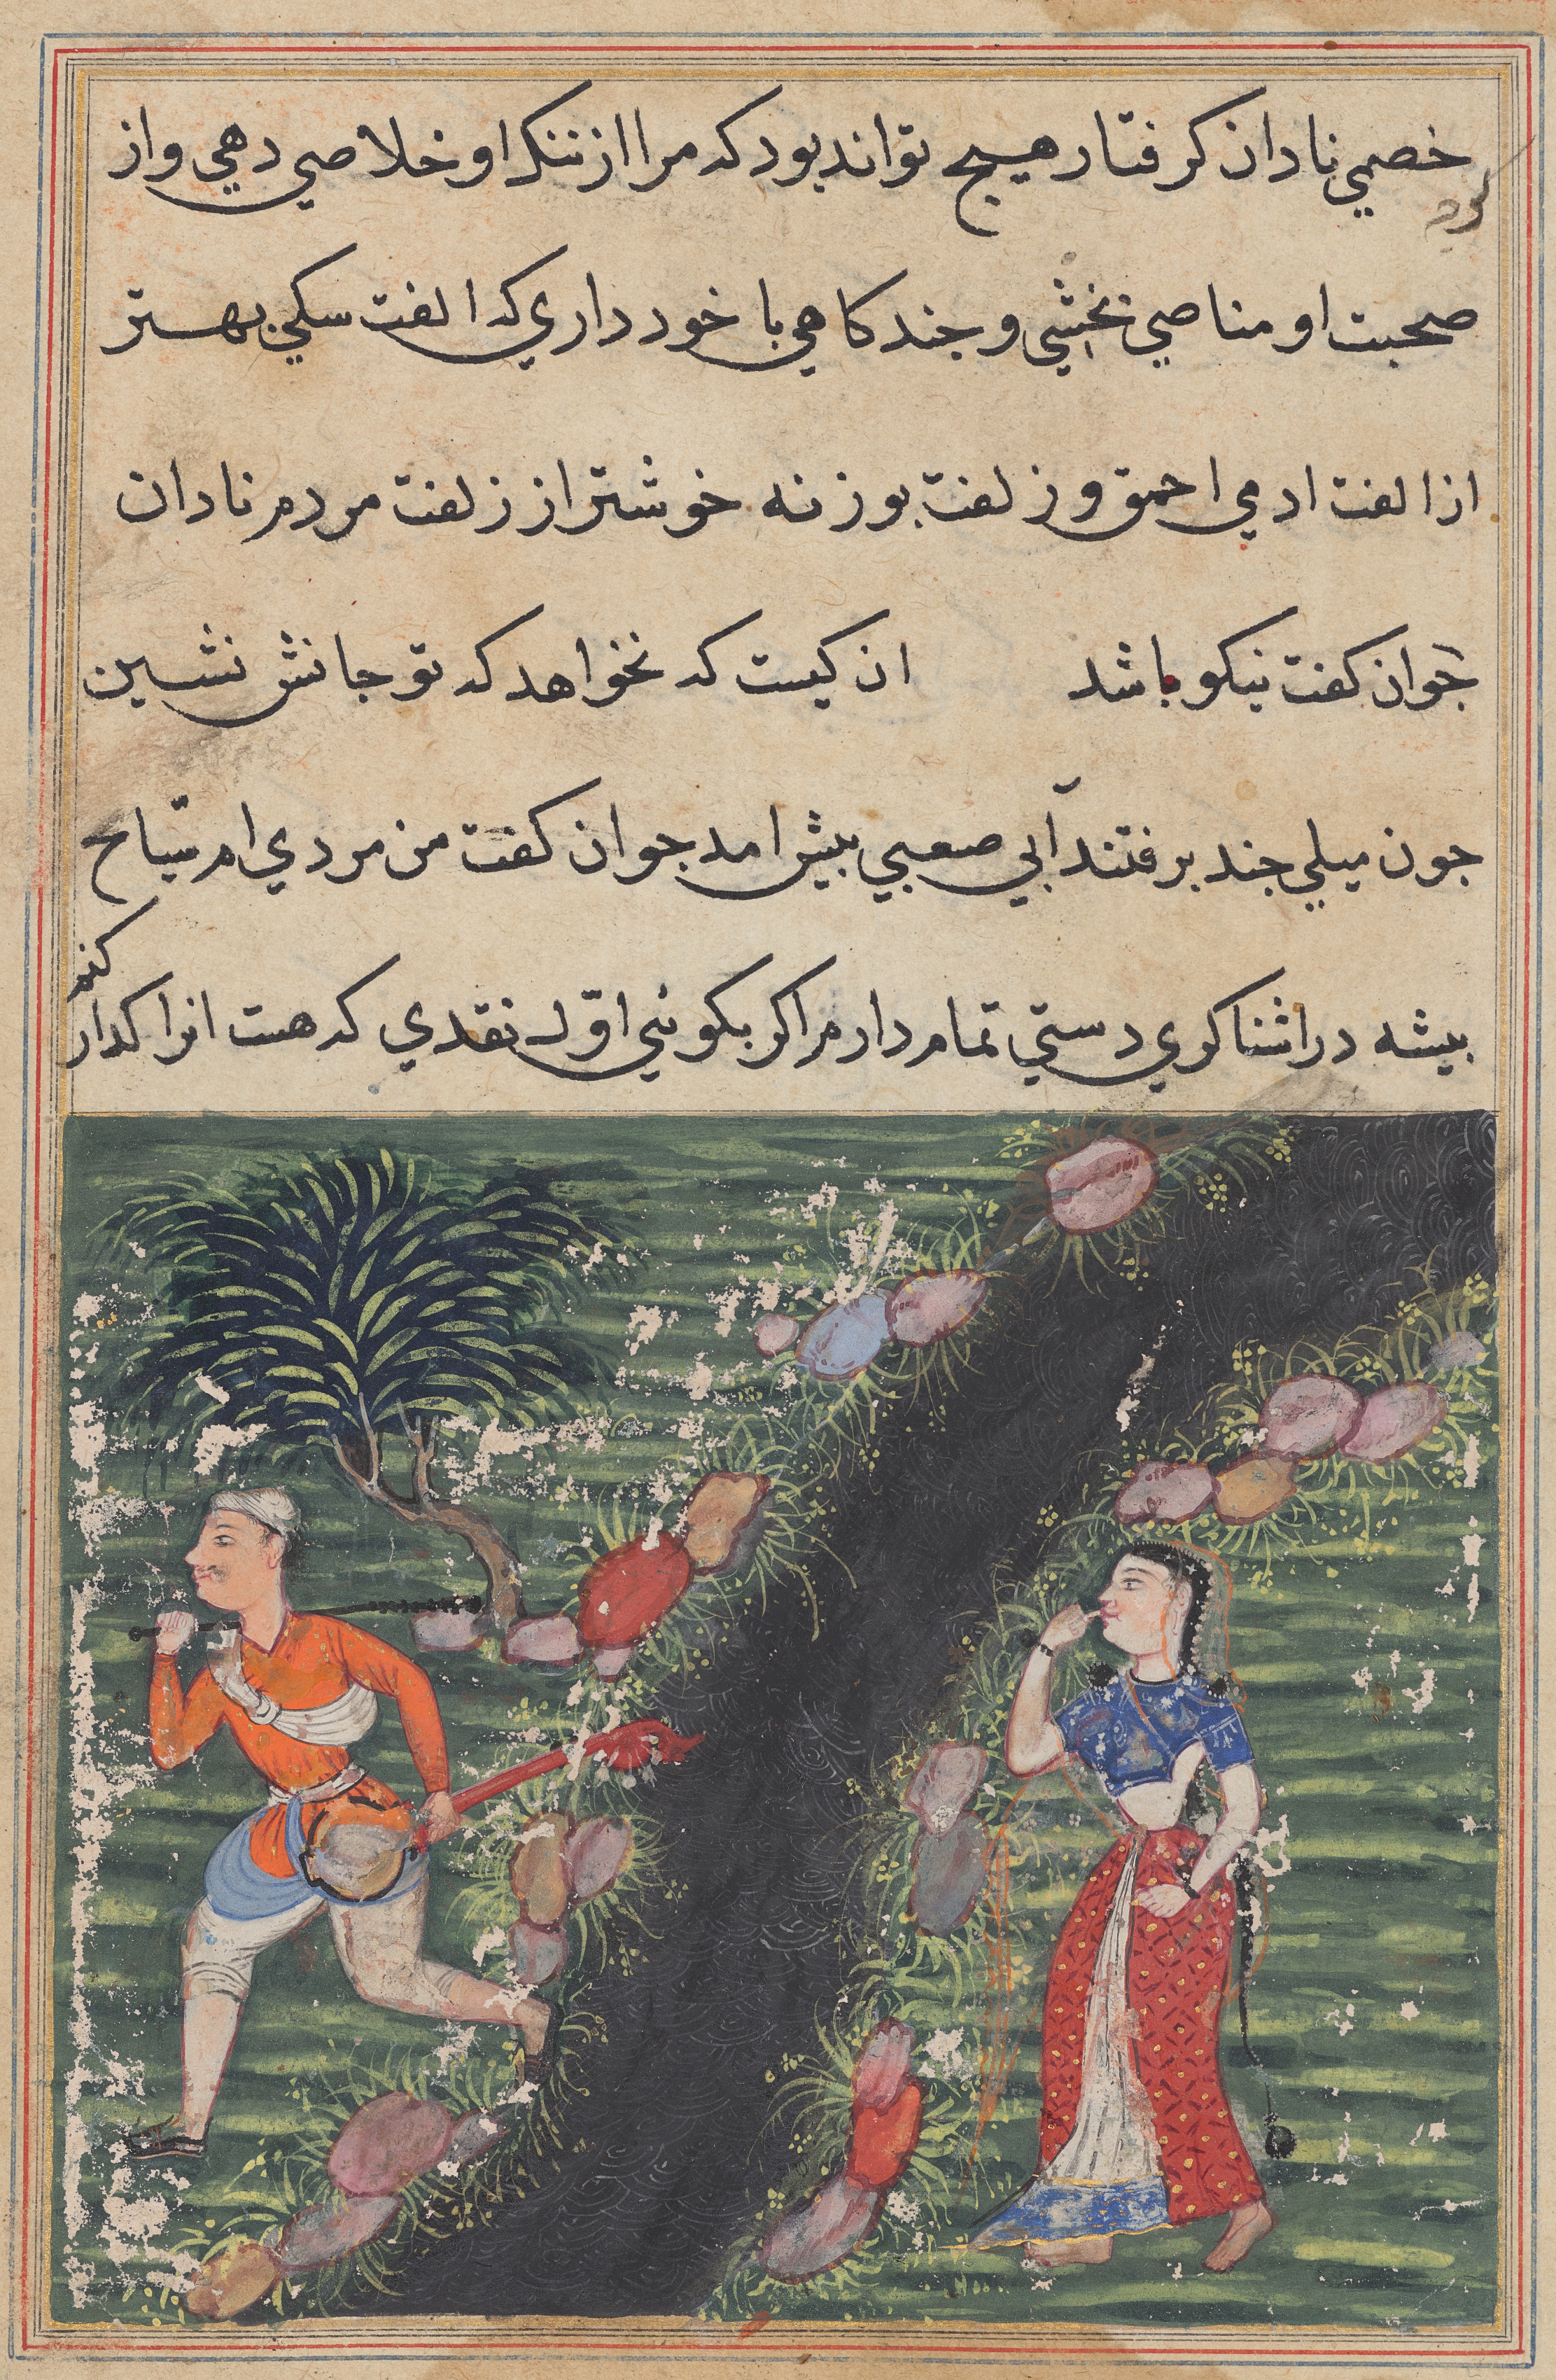 خصمي نادان كرفتار هيج تواند بود كه مرا از ننك او خلاصي دهي واز
صحبت او مناصي بخشي و جند كاهي با خود داري كه الفت سكي بهتر
از الفت ادمي احمق و زلفت بوزنه خوشتر از زلفت مردم نادان
جوان كفت نيكو باشد ان كيست كه نخواهد كه تو جانش نشين
جون ميلي جند برفتند آبي صعبي بيش امد جوان كفت من مردي ام سّياح
بيشه در اشناكري دستي تمام دارم اكر بكوئي اوّل نقدي كه هست انرا كدار
كنم